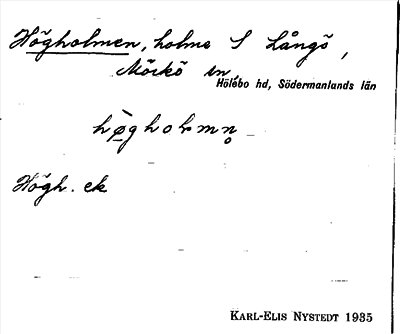 Högholmen, holme S Långö,
Mörkö sn,
Hölebo hd, Södermanlands län
Högh. ek
KARL-ELIS NYSTEDT 1935